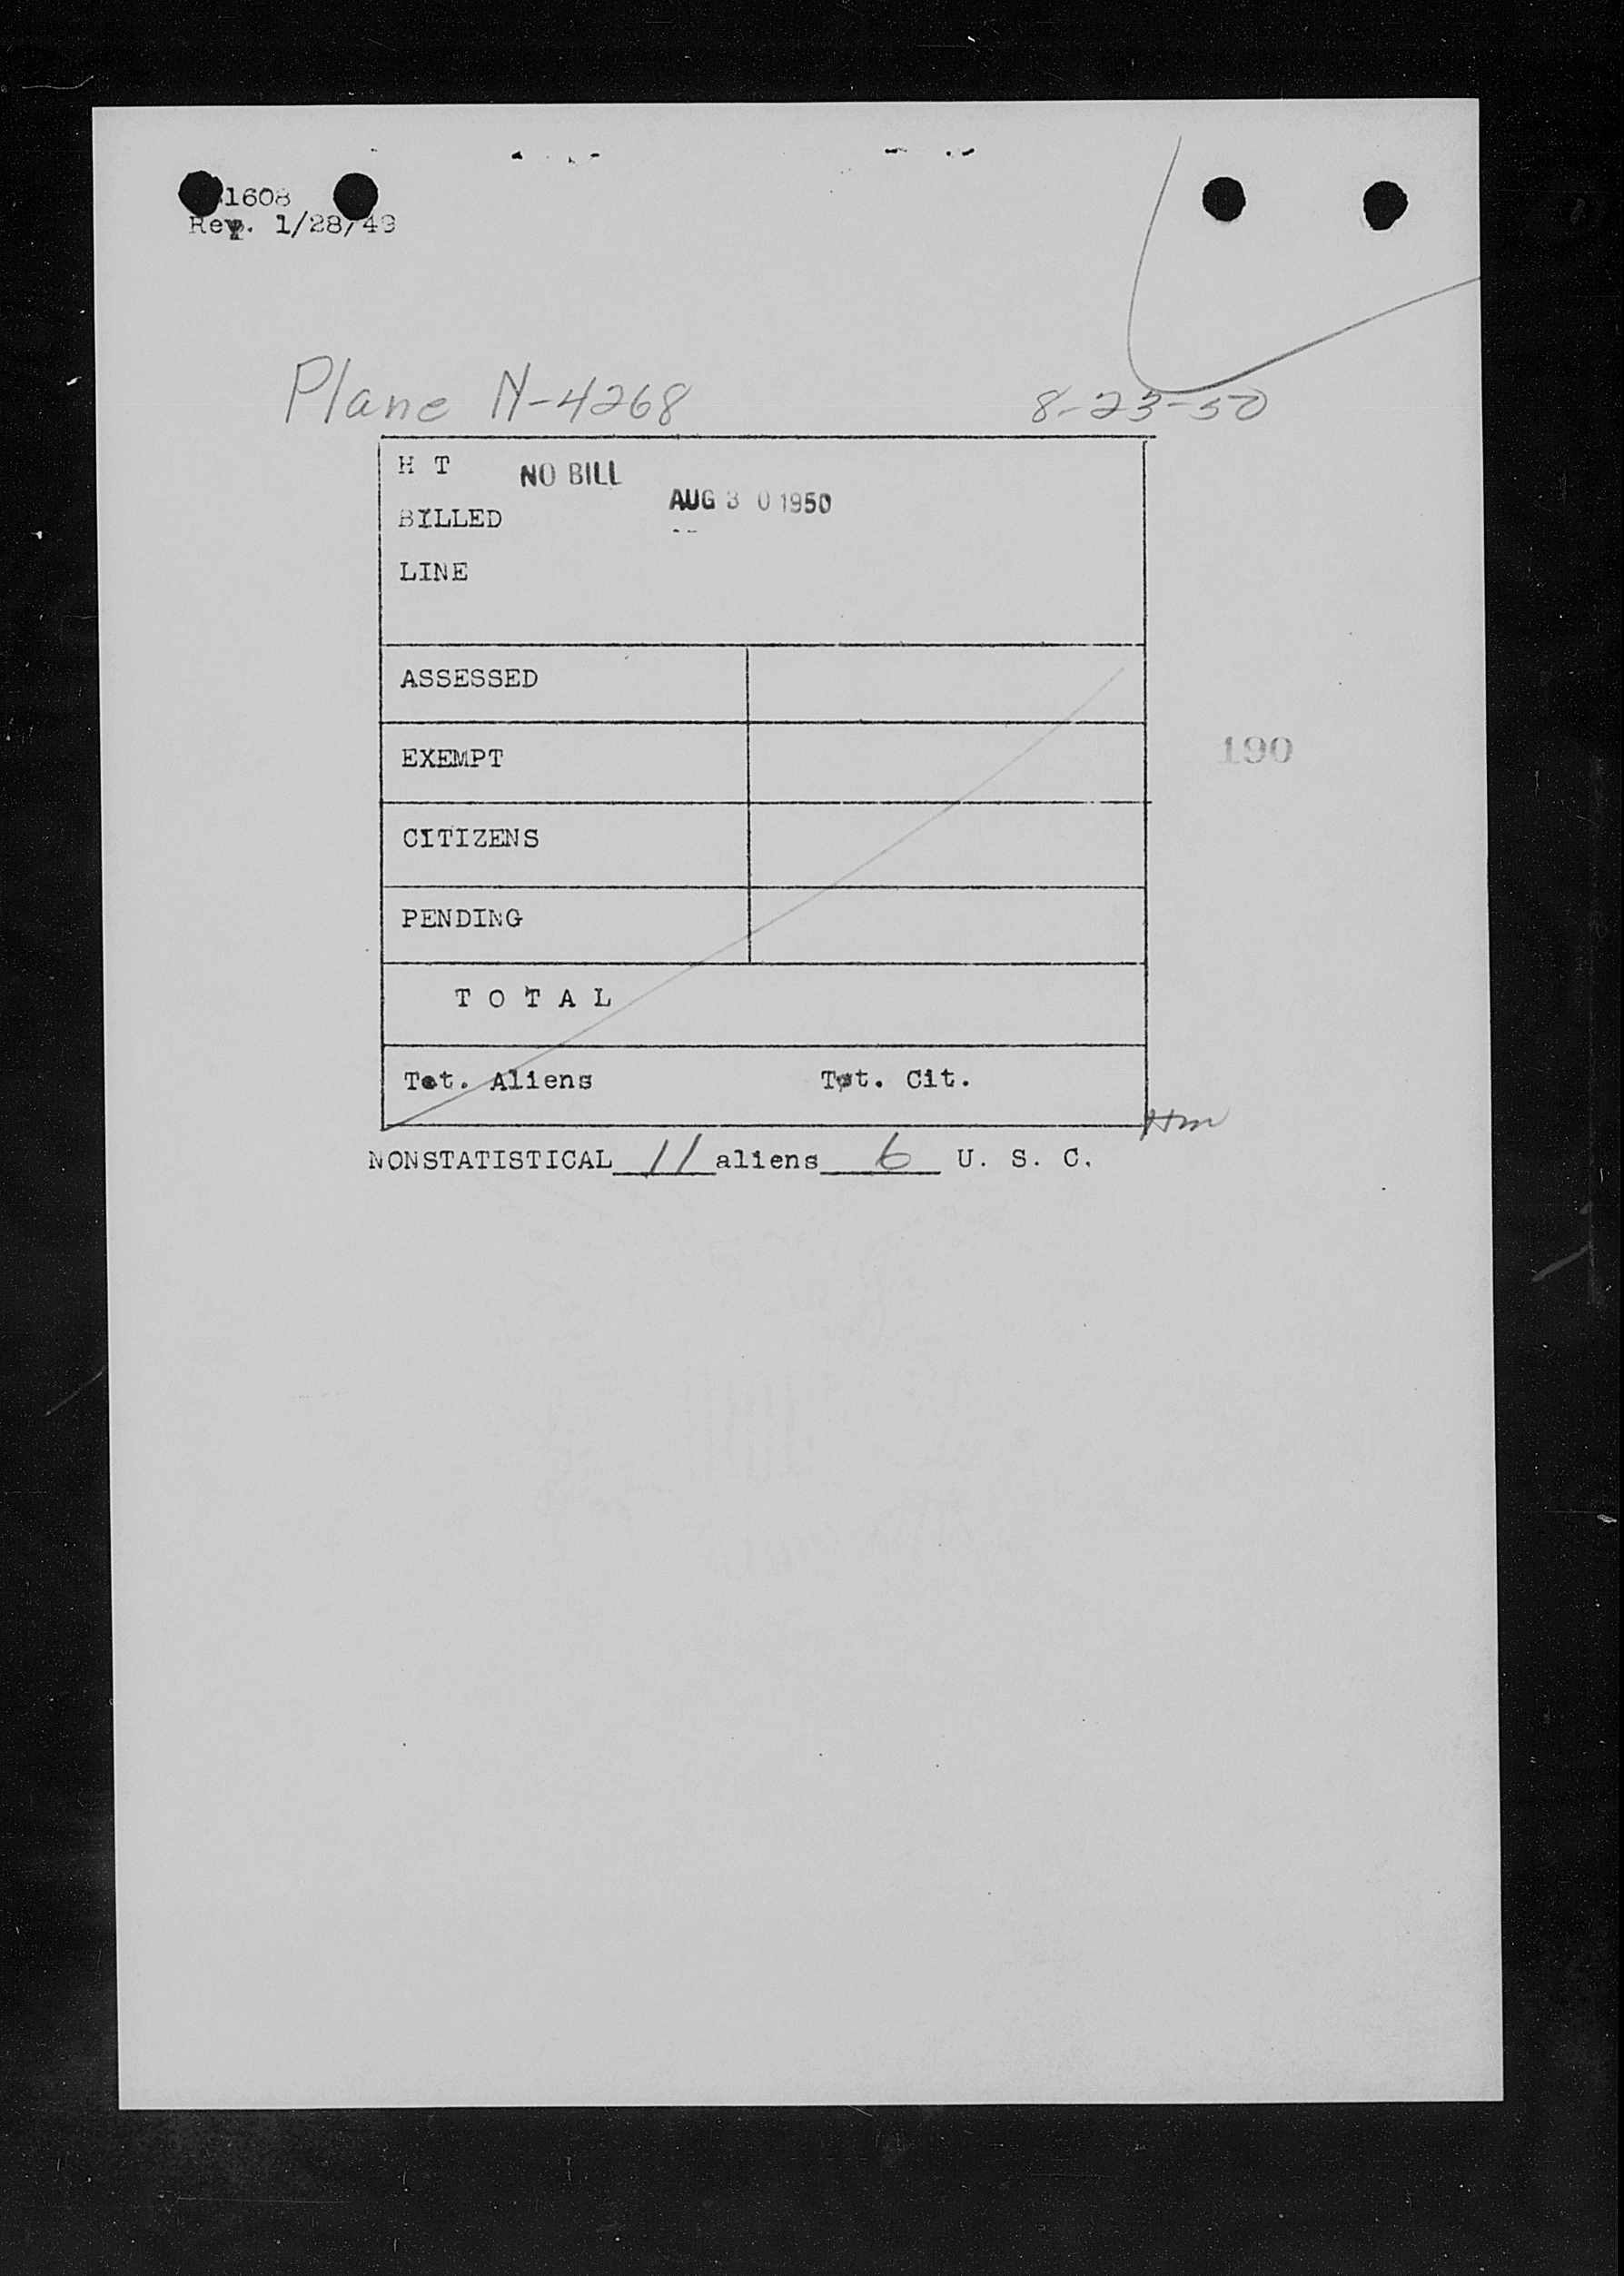 1608
Rev. 1/28/49
Plane N-4268 8-23-50
H T NO BILL
AUG 30 1950
BILLED
LINE
ASSESSED
EXEMPT
190
CITIZENS
PENDING
T O T A L
Tot. Aliens Tot. Cit.
Hm
NONSTATISTICAL 11 aliens 6 U. S. C.